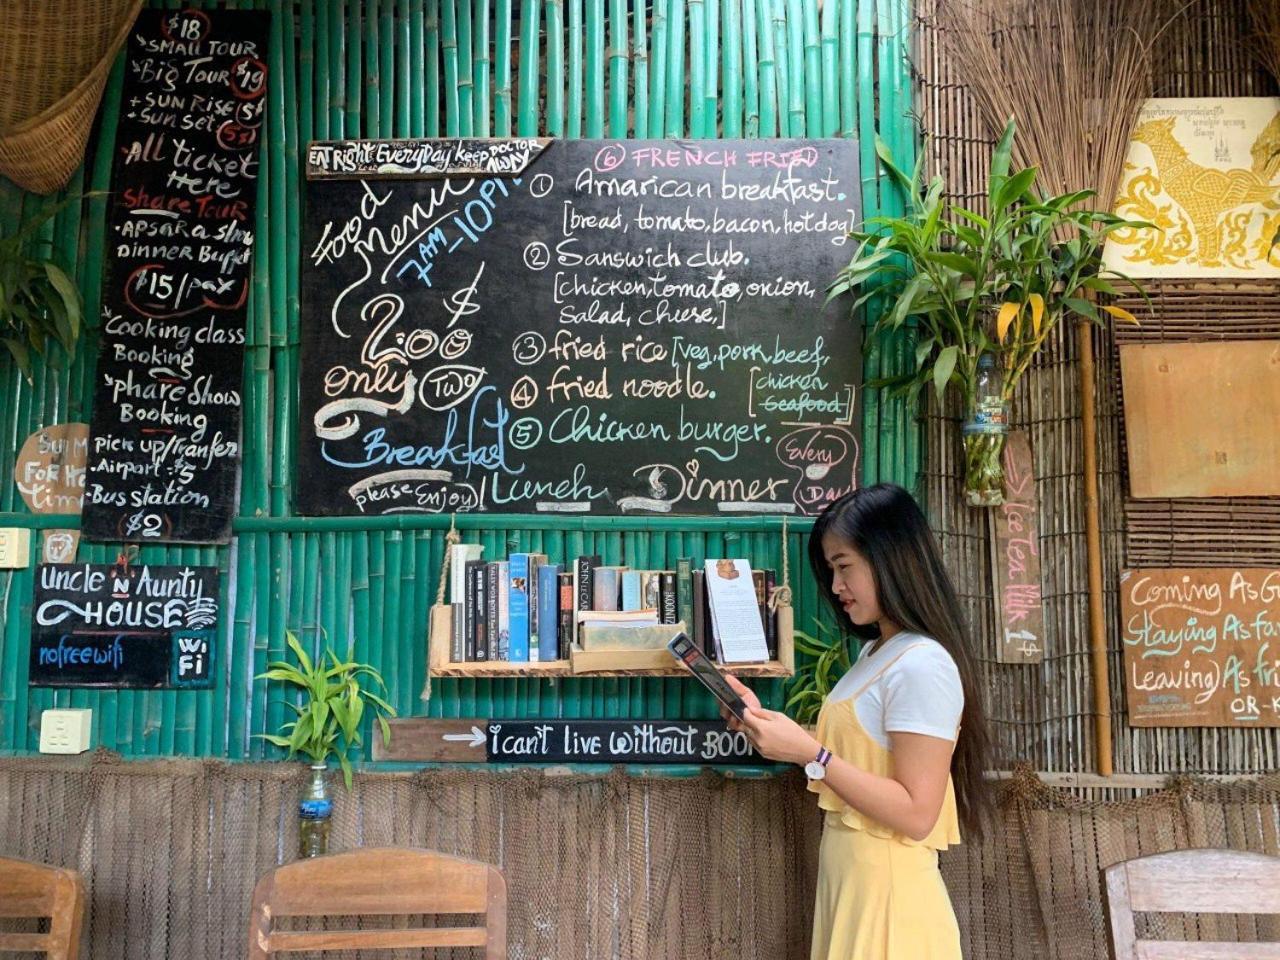 $18
SMALL TOUR
Big TOUR $19
+ SUN RISE 5$
+ Sun set 5$
All ticket
Here
Share TOUR
APSARA show
Dinner Buffet
$15/pax
Cooking class
Booking
phare Show
Booking
pick up/Transfer
Airport $5
Bus station
$2
FOR
tim
uncle N Aunty
HOUSE
no free wifi
Wi
Fi
EAT Right EveryDay keep DOCTOR
AWAY
Food
Menu
7AM_10PM
2:00 $
Only Two
Breakfast
please Enjoy
Lunch Dinner
Every
Day
⑥ FRENCH FRIED
① Amarican breakfast.
[bread, tomato, bacon, hotdog]
② Sanswich club.
[chicken, tomato, onion,
Salad, cheese,]
③ fried rice [veg, pork, beef,
④ fried noodle. [chicken
Seafood]
⑤ Chicken burger.
JOHN LE CAR
KOONTZ
i can't live without BOO
Ice Tea Milk 1$
Coming As G
Staying As fa
Leaving As fri
OR-K